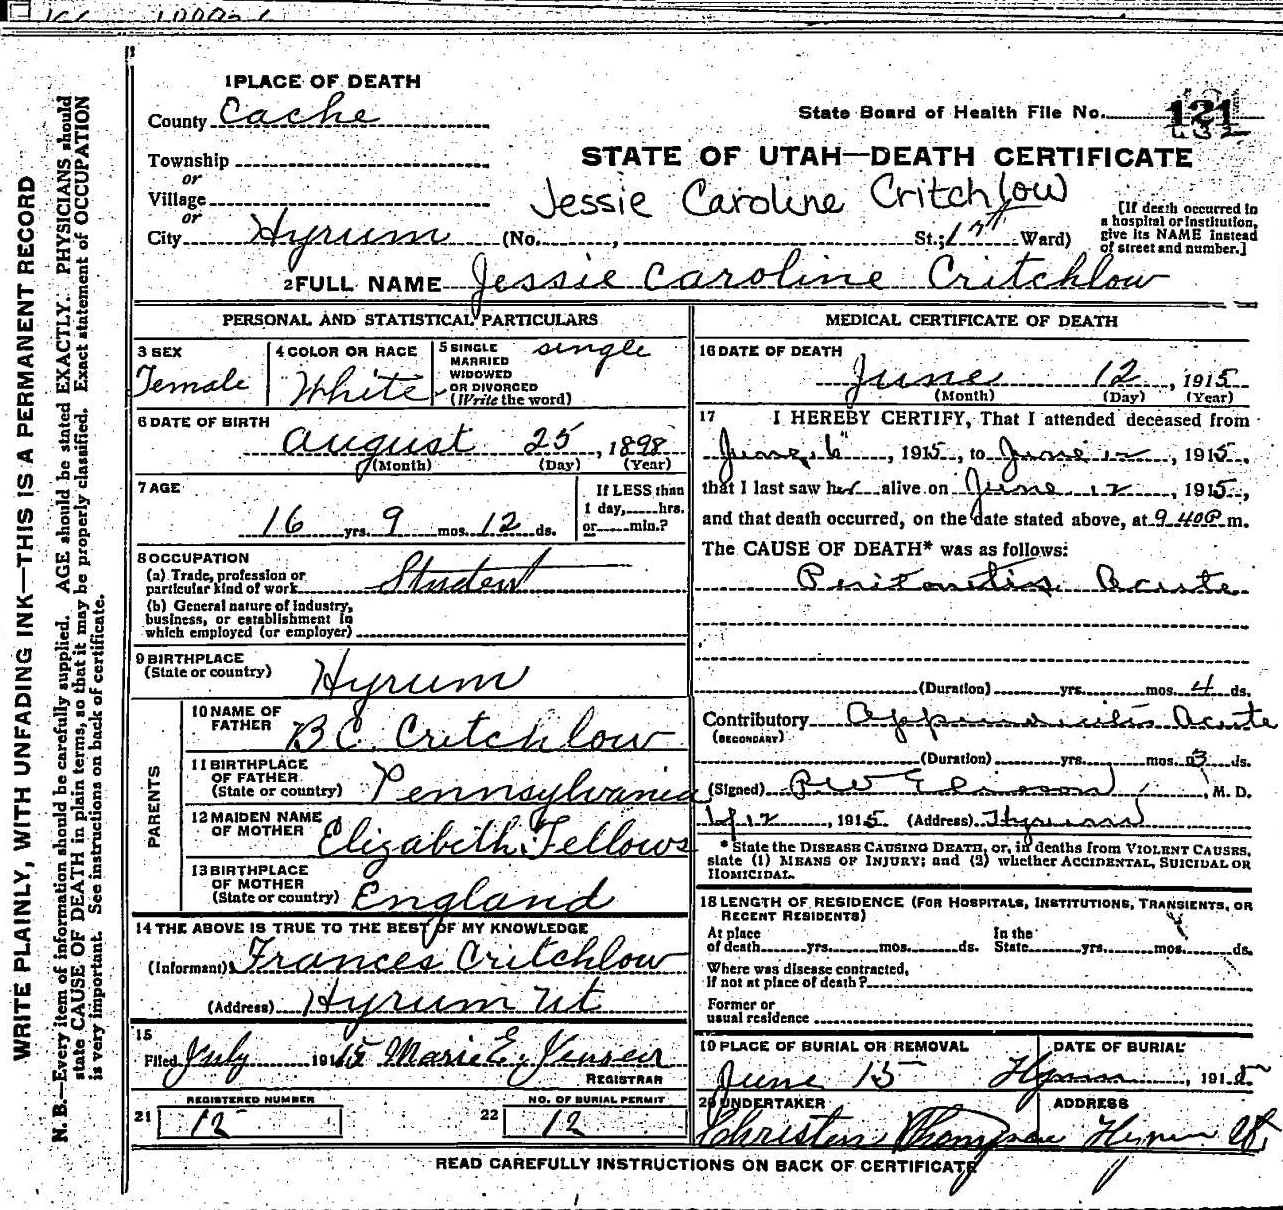 1 PLACE OF DEATH
County Cache
State Board of Health File No. 121
Township
or
Village
or
STATE OF UTAH—DEATH CERTIFICATE
Jessie Caroline Critchlow
City Hyrum (No. , St.; Ward)
[If death occurred in
a hospital or institution,
give its NAME instead
of street and number.]
2 FULL NAME Jessie Caroline Critchlow
PERSONAL AND STATISTICAL PARTICULARS
3 SEX
Female
4 COLOR OR RACE
White
5 SINGLE
MARRIED
WIDOWED
OR DIVORCED
(Write the word)
single
6 DATE OF BIRTH
August 25, 1898
(Month) (Day) (Year)
7 AGE
16 yrs. 9 mos. 12 ds.
If LESS than
1 day, hrs.
or min.?
8 OCCUPATION
(a) Trade, profession or
particular kind of work Student
(b) General nature of industry,
business, or establishment in
which employed (or employer)
9 BIRTHPLACE
(State or country) Hyrum
PARENTS
10 NAME OF
FATHER B C. Critchlow
11 BIRTHPLACE
OF FATHER
(State or country) Pennsylvania
12 MAIDEN NAME
OF MOTHER Elizabeth Fellows
13 BIRTHPLACE
OF MOTHER
(State or country) England
14 THE ABOVE IS TRUE TO THE BEST OF MY KNOWLEDGE
(Informant) Frances Critchlow
(Address) Hyrum Ut
15
Filed July 1915 Marie E. Jensen
REGISTRAR
REGISTERED NUMBER
21 12
NO. OF BURIAL PERMIT
22 12
MEDICAL CERTIFICATE OF DEATH
16 DATE OF DEATH
June 12, 1915
(Month) (Day) (Year)
17 I HEREBY CERTIFY, That I attended deceased from
June, 1915, to June 12, 1915,
that I last saw her alive on June 12, 1915,
and that death occurred, on the date stated above, at 9 40 P m.
The CAUSE OF DEATH* was as follows:
Peritonitis Acute
(Duration) yrs. mos. 4 ds.
Contributory Appendicitis Acute
(SECONDARY)
(Duration) yrs. mos. 3 ds.
(Signed) , M. D.
, 1915 (Address) Hyrum
* State the DISEASE CAUSING DEATH, or, in deaths from VIOLENT CAUSES,
state (1) MEANS OF INJURY; and (2) whether ACCIDENTAL, SUICIDAL OR
HOMICIDAL.
18 LENGTH OF RESIDENCE (FOR HOSPITALS, INSTITUTIONS, TRANSIENTS, OR
RECENT RESIDENTS)
At place
of death yrs. mos. ds.
In the
State yrs. mos. ds.
Where was disease contracted,
if not at place of death?
Former or
usual residence
19 PLACE OF BURIAL OR REMOVAL
DATE OF BURIAL
June 15 Hyrum, 1915
20 UNDERTAKER
ADDRESS
Hyrum Ut.
READ CAREFULLY INSTRUCTIONS ON BACK OF CERTIFICATE
WRITE PLAINLY, WITH UNFADING INK—THIS IS A PERMANENT RECORD
N. B.—Every item of information should be carefully supplied. AGE should be stated EXACTLY. PHYSICIANS should
state CAUSE OF DEATH in plain terms, so that it may be properly classified. Exact statement of OCCUPATION
is very important. See instructions on back of certificate.